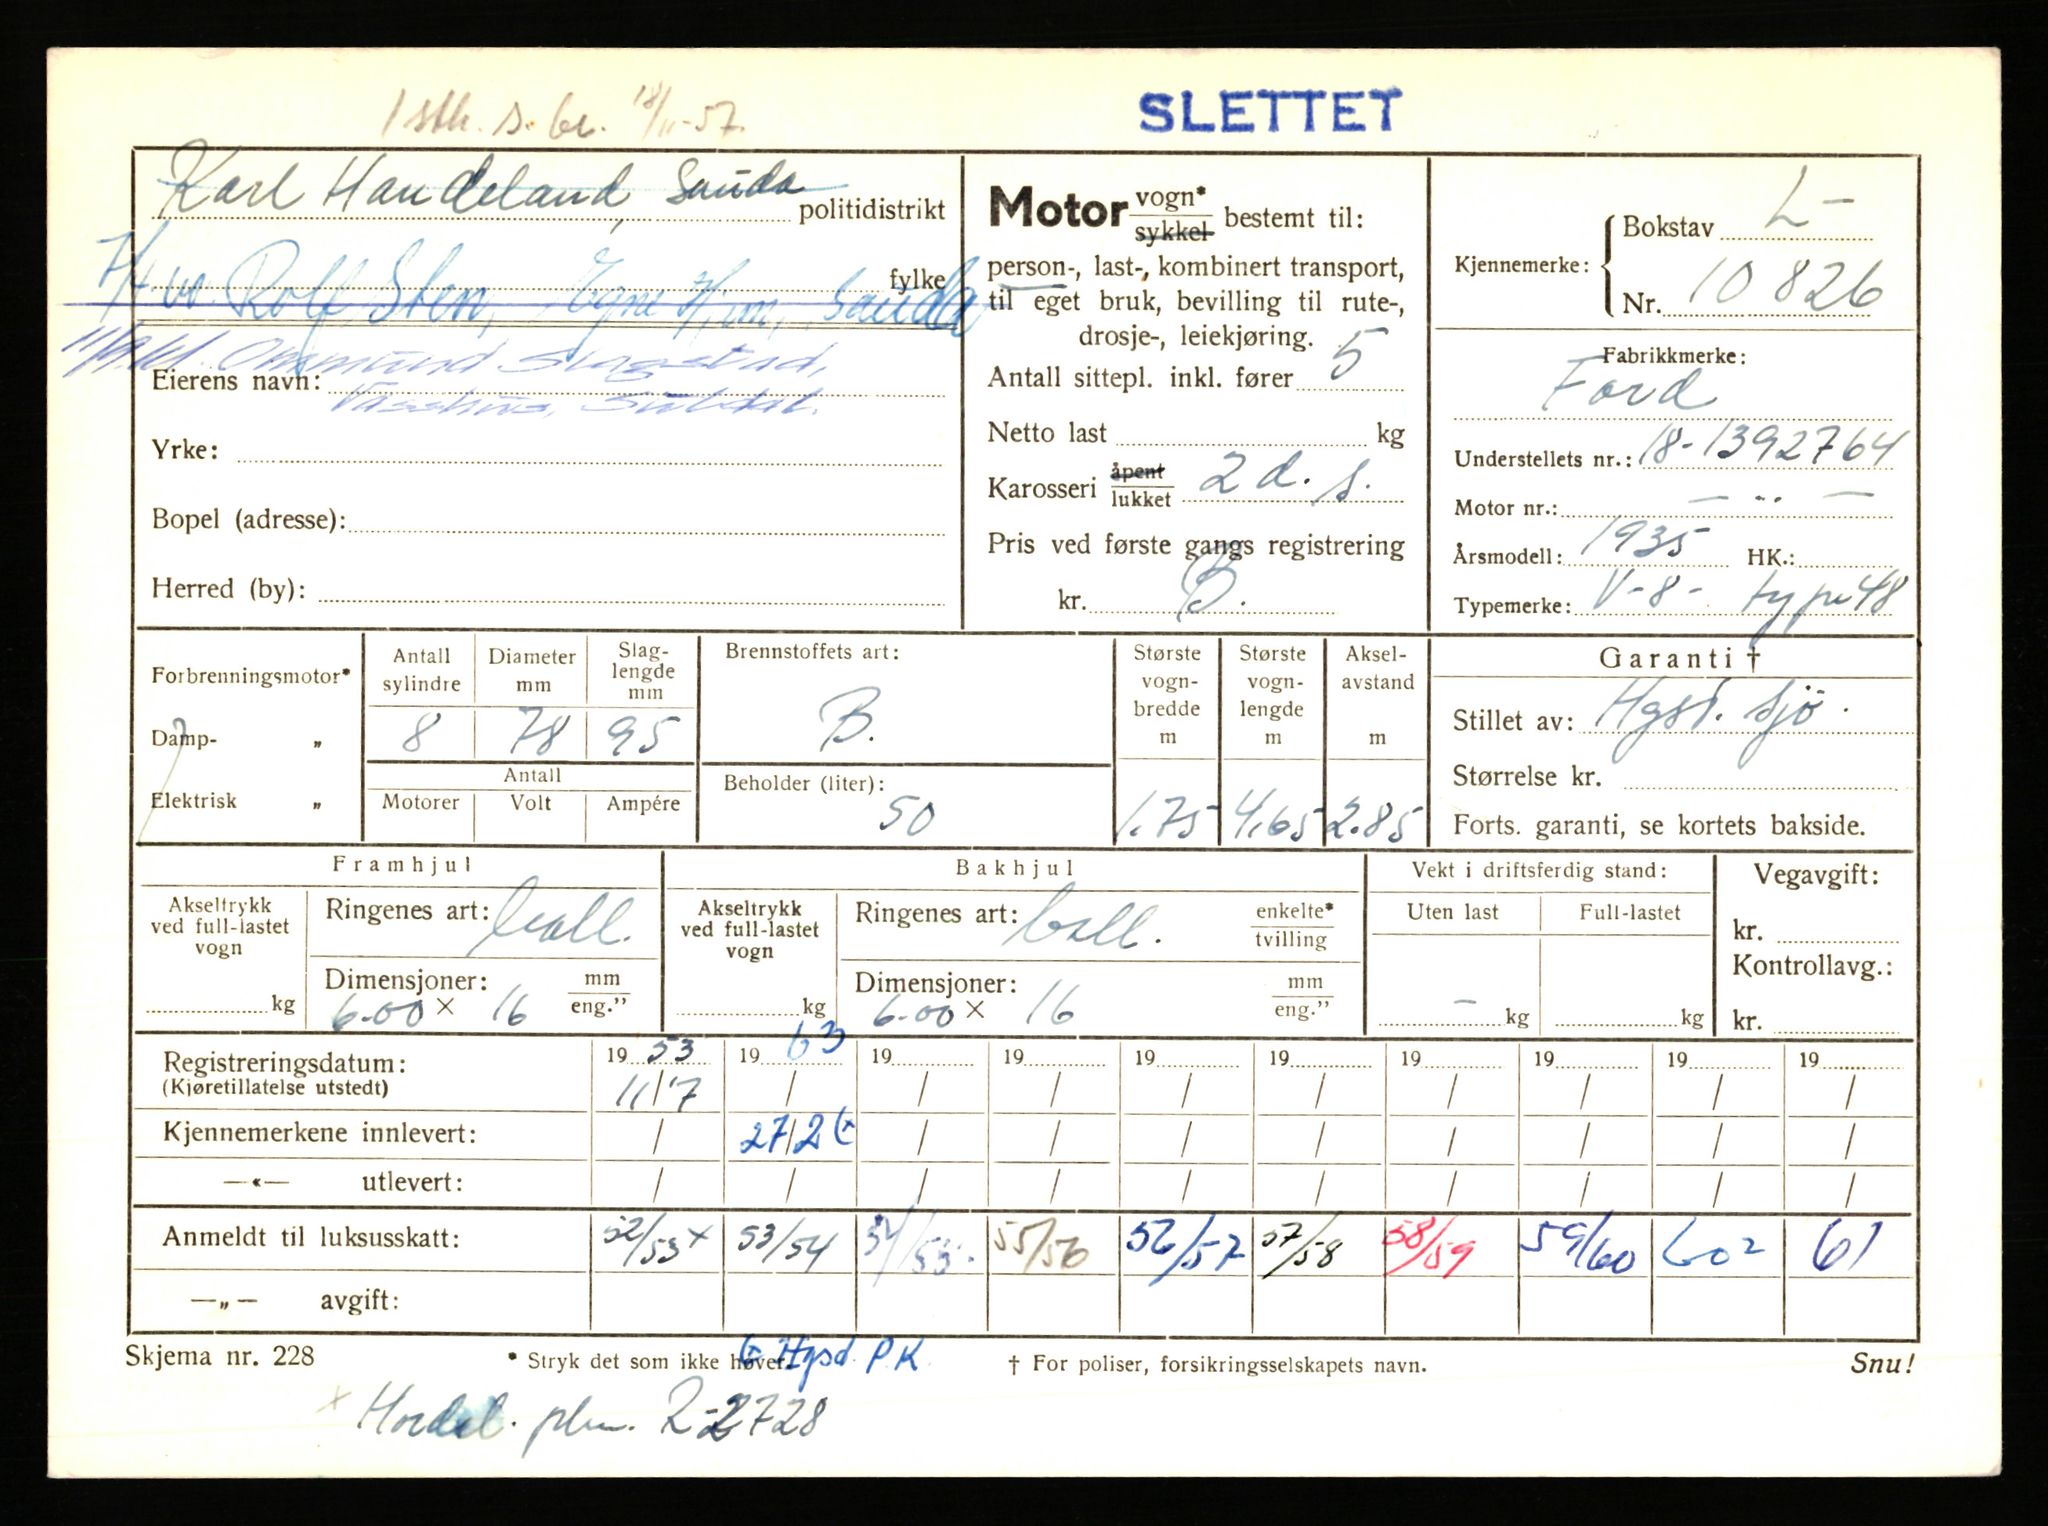 SLETTET
18/11-57.
Karl Handeland, Sauda politidistrikt
Rolf Sten, Egne Hjem, Sauda fylke
Ommund
Eierens navn:
Vasshus, Suldal.
Yrke:
Bopel (adresse):
Herred (by):
Motor vogn* sykkel bestemt til:
person-, last-, kombinert transport,
til eget bruk, bevilling til rute-,
drosje-, leiekjøring.
Antall sittepl. inkl. fører 5
Netto last kg
Karosseri åpent lukket 2 d. s.
Pris ved første gangs registrering
kr. B.
Kjennemerke: Bokstav L-
Nr. 10826
Fabrikkmerke:
Ford
Understellets nr.: 18-1392764
Motor nr.: — „ —
Årsmodell: 1935 HK.:
Typemerke: V-8- type 48
Forbrenningsmotor*
Damp- „
Elektrisk „
Antall sylindre 8
Diameter mm 78
Slaglengde mm 95
Antall
Motorer Volt Ampére
Brennstoffets art:
B.
Beholder (liter):
50
Største vognbredde m 1.75
Største vognlengde m 4,65
Akselavstand m 2.85
Garanti †
Stillet av: Hgsd. sjø.
Størrelse kr.
Forts. garanti, se kortets bakside.
Framhjul
Akseltrykk ved full-lastet vogn kg
Ringenes art: ball.
Dimensjoner: mm
6-00 x 16 eng.”
Bakhjul
Akseltrykk ved full-lastet vogn kg
Ringenes art: ball. enkelte* tvilling
Dimensjoner: mm
6-00 x 16 eng.”
Vekt i driftsferdig stand:
Uten last Full-lastet
- kg kg
Vegavgift:
kr.
Kontrollavg.:
kr.
Registreringsdatum: 19 53 19 63 19 19 19 19 19 19 19 19
(Kjøretillatelse utstedt) 11/7 / / / / / / / / /
Kjennemerkene innlevert: / 27/2 / / / / / / / /
—«— utlevert: / / / / / / / / / /
Anmeldt til luksusskatt: 52/53x 53/54 54/55. 55/56 56/57 57/58 58/59 59/60 602 61
—„— avgift:
Skjema nr. 228 * Stryk det som ikke høver. Hgsd. P.K † For poliser, forsikringsselskapets navn. Snu!
x Hordal. R-2728